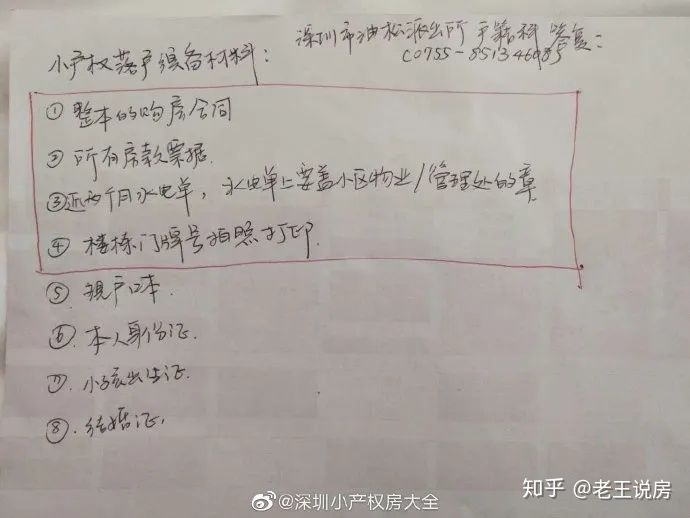 深圳市油松派出所 户籍科 答复:
(0755-85134698)
小产权落户须备材料:
① 整本的购房合同
② 所有房款票据.
③ 近两个月水电单, 水电单上要盖小区物业/管理处的章
④ 楼栋门牌号拍照打印.
⑤ 户口本.
⑥. 本人身份证.
⑦. 小孩出生证.
⑧. 结婚证.
@深圳小产权房大全
知乎 @老王说房